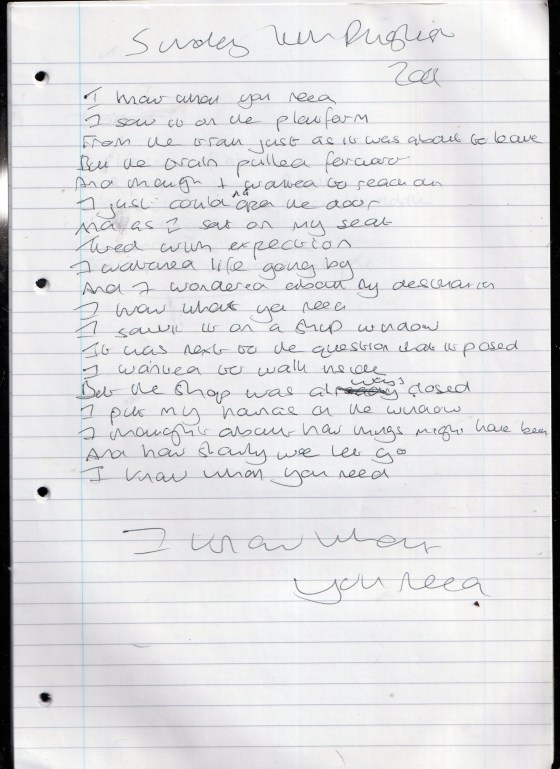 Sunday
I know what you need
I saw it on the platform
From the train just as it was about to leave
But the train pulled forward
And though I wanted to reach on
I just could not open the door
And as I sat on my seat
Tired with expection
I watched life going by
And I wondered about my destination
I know what you need
I saw it on a shop window
It was next to the question that it posed
I wanted to walk inside
But the shop was always closed
I put my hands on the window
I thought about how things might have been
And how slowly we let go
I know what you need
I know what
you need